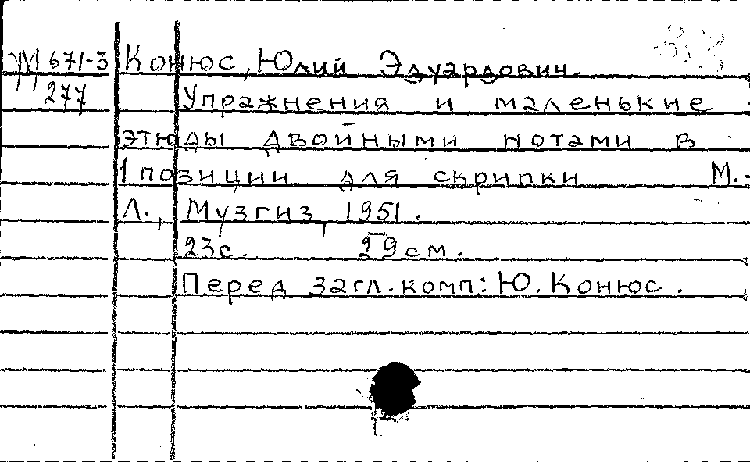 М 671-3 Конюс, Юлий Эдуардович.
277 Упражнения и маленькие
этюды двойными нотами в
1 позиции для скрипки М.-
Л., Музгиз, 1951.
23с. 29см.
Перед загл. комп: Ю. Конюс.